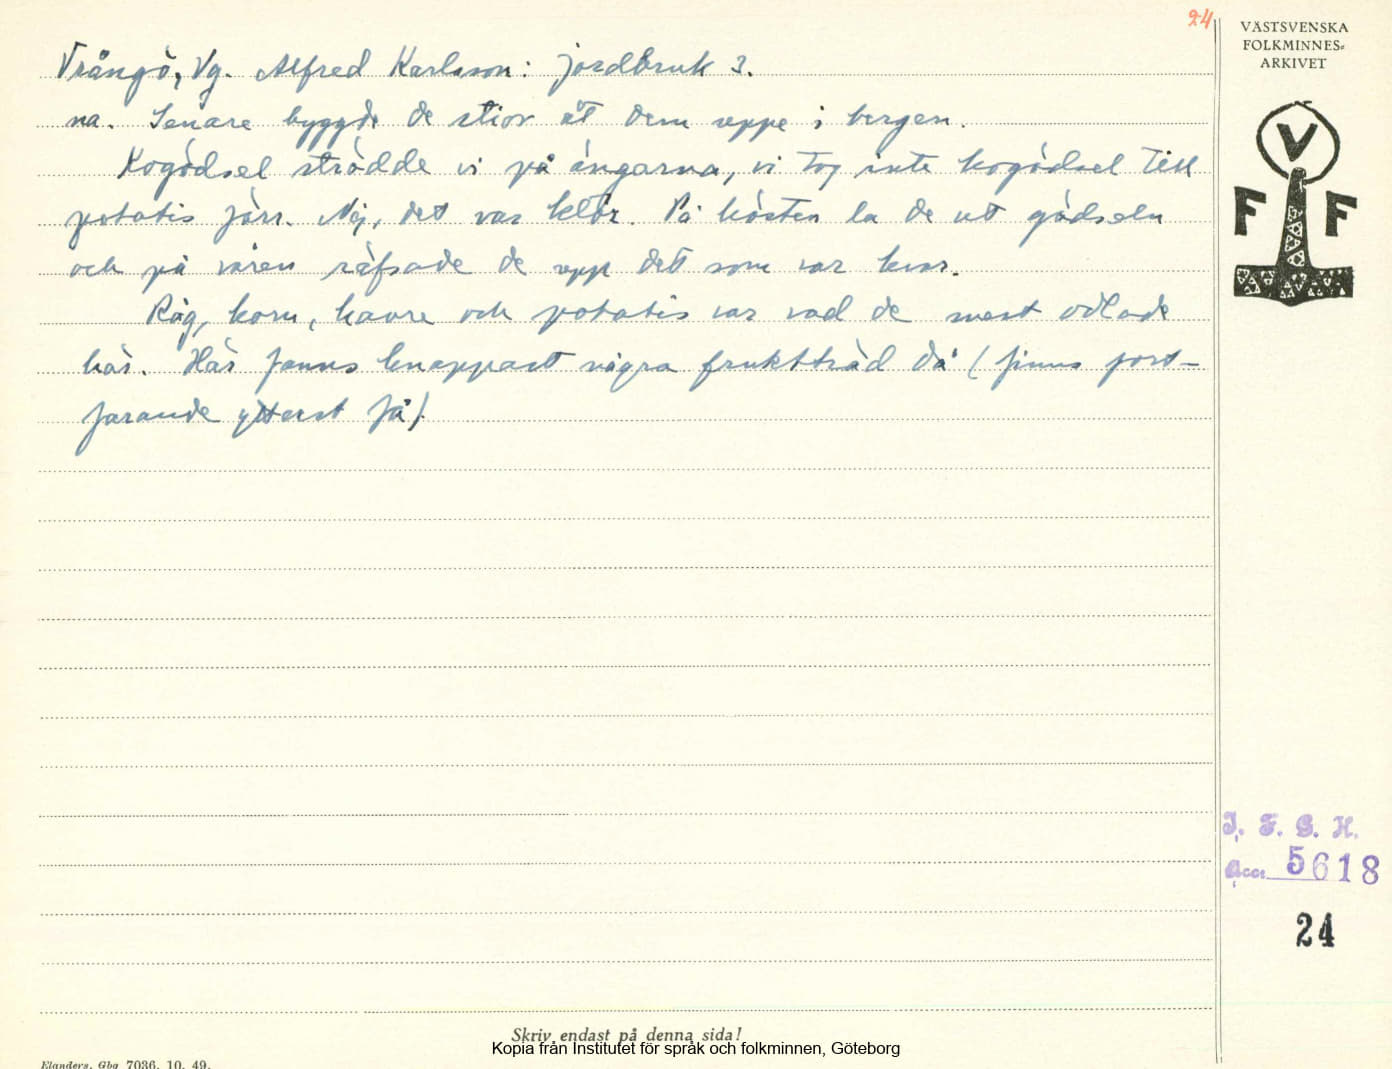 24
VÄSTSVENSKA
FOLKMINNES-
ARKIVET
Vrångö, Vg. Alfred Karlsson: Jordbruk 3.
na. Senare byggde de stior åt dem uppe i bergen.
Kogödsel strödde vi på ängarna, vi tog inte kogödsel till
potatis förr. Nej, det var klör. På hösten la de ut gödseln
och på våren räfsade de upp det som var kvar.
Råg, korn, havre och potatis var vad de mest odlade
här. Här fanns knappast några fruktträd då (finns fort-
farande ytterst få).
V
F F
I. F. G. H.
Acc. 5618
24
Skriv endast på denna sida!
Kopia från Institutet för språk och folkminnen, Göteborg
Elanders, Gbg 7036. 10. 49.